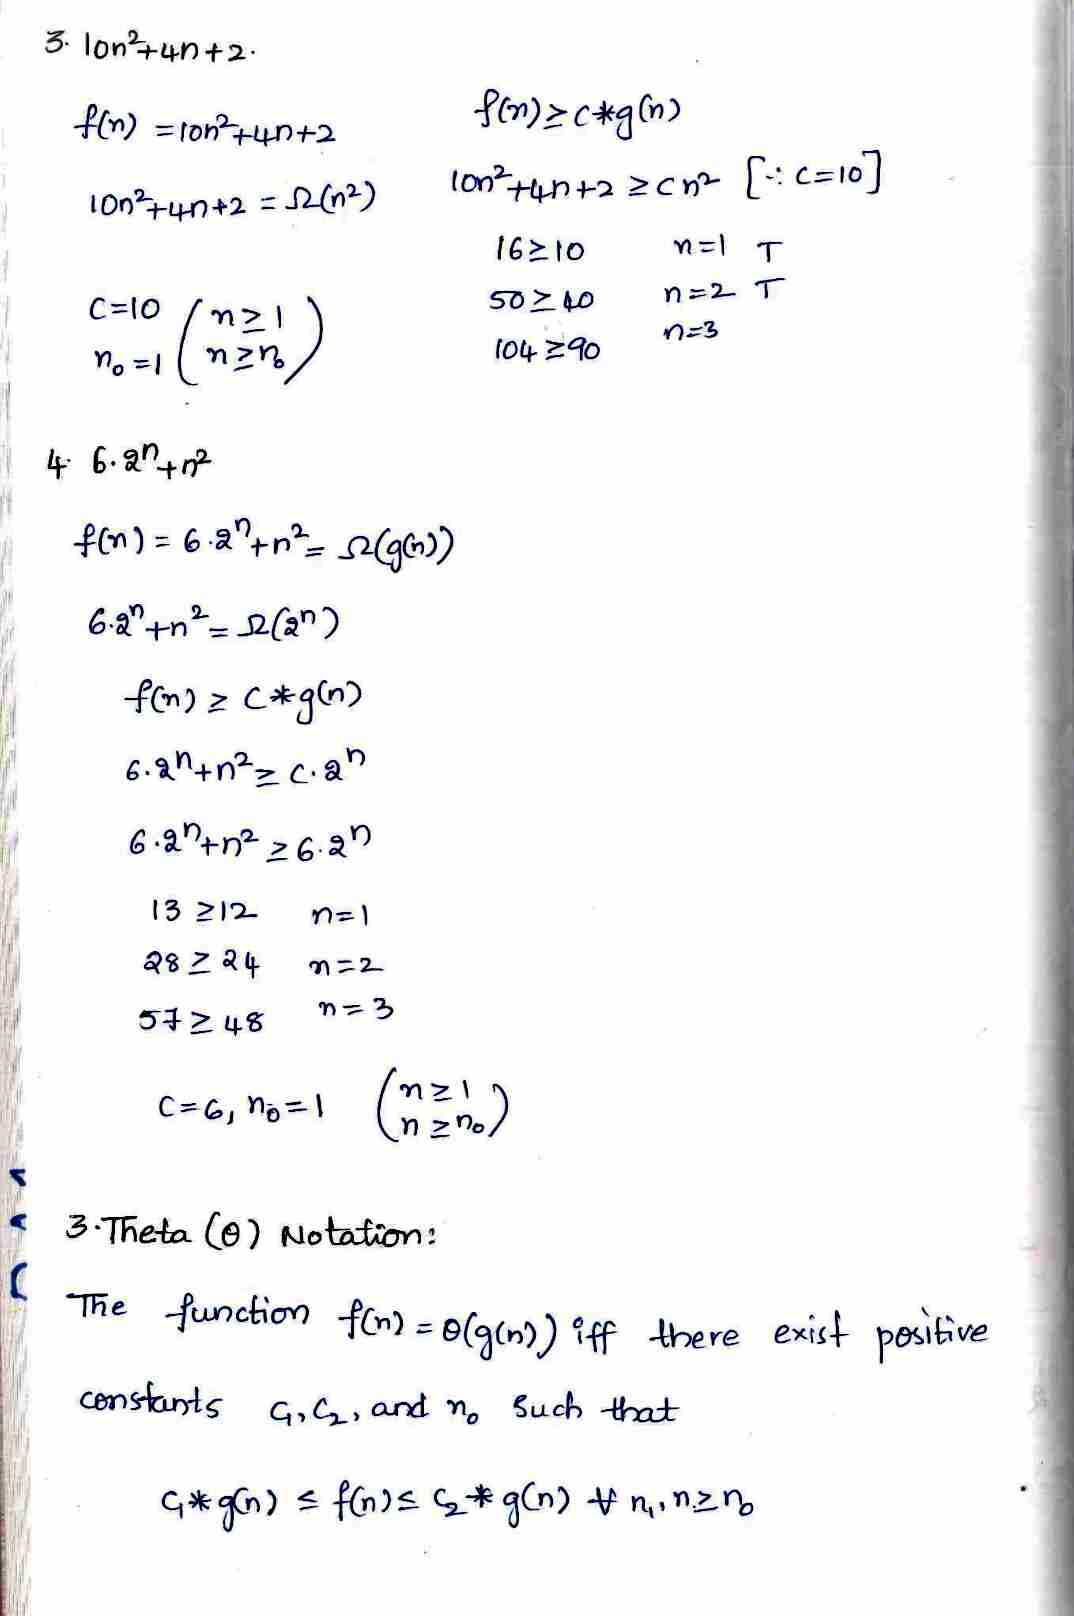 3. 10n²+4n+2.
f(n) = 10n²+4n+2
10n²+4n+2 = Ω(n²)
C=10
n₀=1 (n≥1
n≥n₀)
f(n) ≥ C*g(n)
10n²+4n+2 ≥ c n² [∵ C=10]
16≥10 n=1 T
50≥40 n=2 T
104≥90 n=3
4. 6·2ⁿ+n²
f(n) = 6·2ⁿ+n² = Ω(g(n))
6·2ⁿ+n² = Ω(2ⁿ)
f(n) ≥ C*g(n)
6·2ⁿ+n² ≥ C·2ⁿ
6·2ⁿ+n² ≥ 6·2ⁿ
13 ≥12 n=1
28 ≥ 24 n=2
57 ≥ 48 n=3
C=6, n₀=1 (n≥1
n≥n₀)
3·Theta (θ) Notation:
The function f(n) = θ(g(n)) iff there exist positive
constants C₁, C₂, and n₀ such that
C₁*g(n) ≤ f(n) ≤ C₂*g(n) ∀ n, n≥n₀